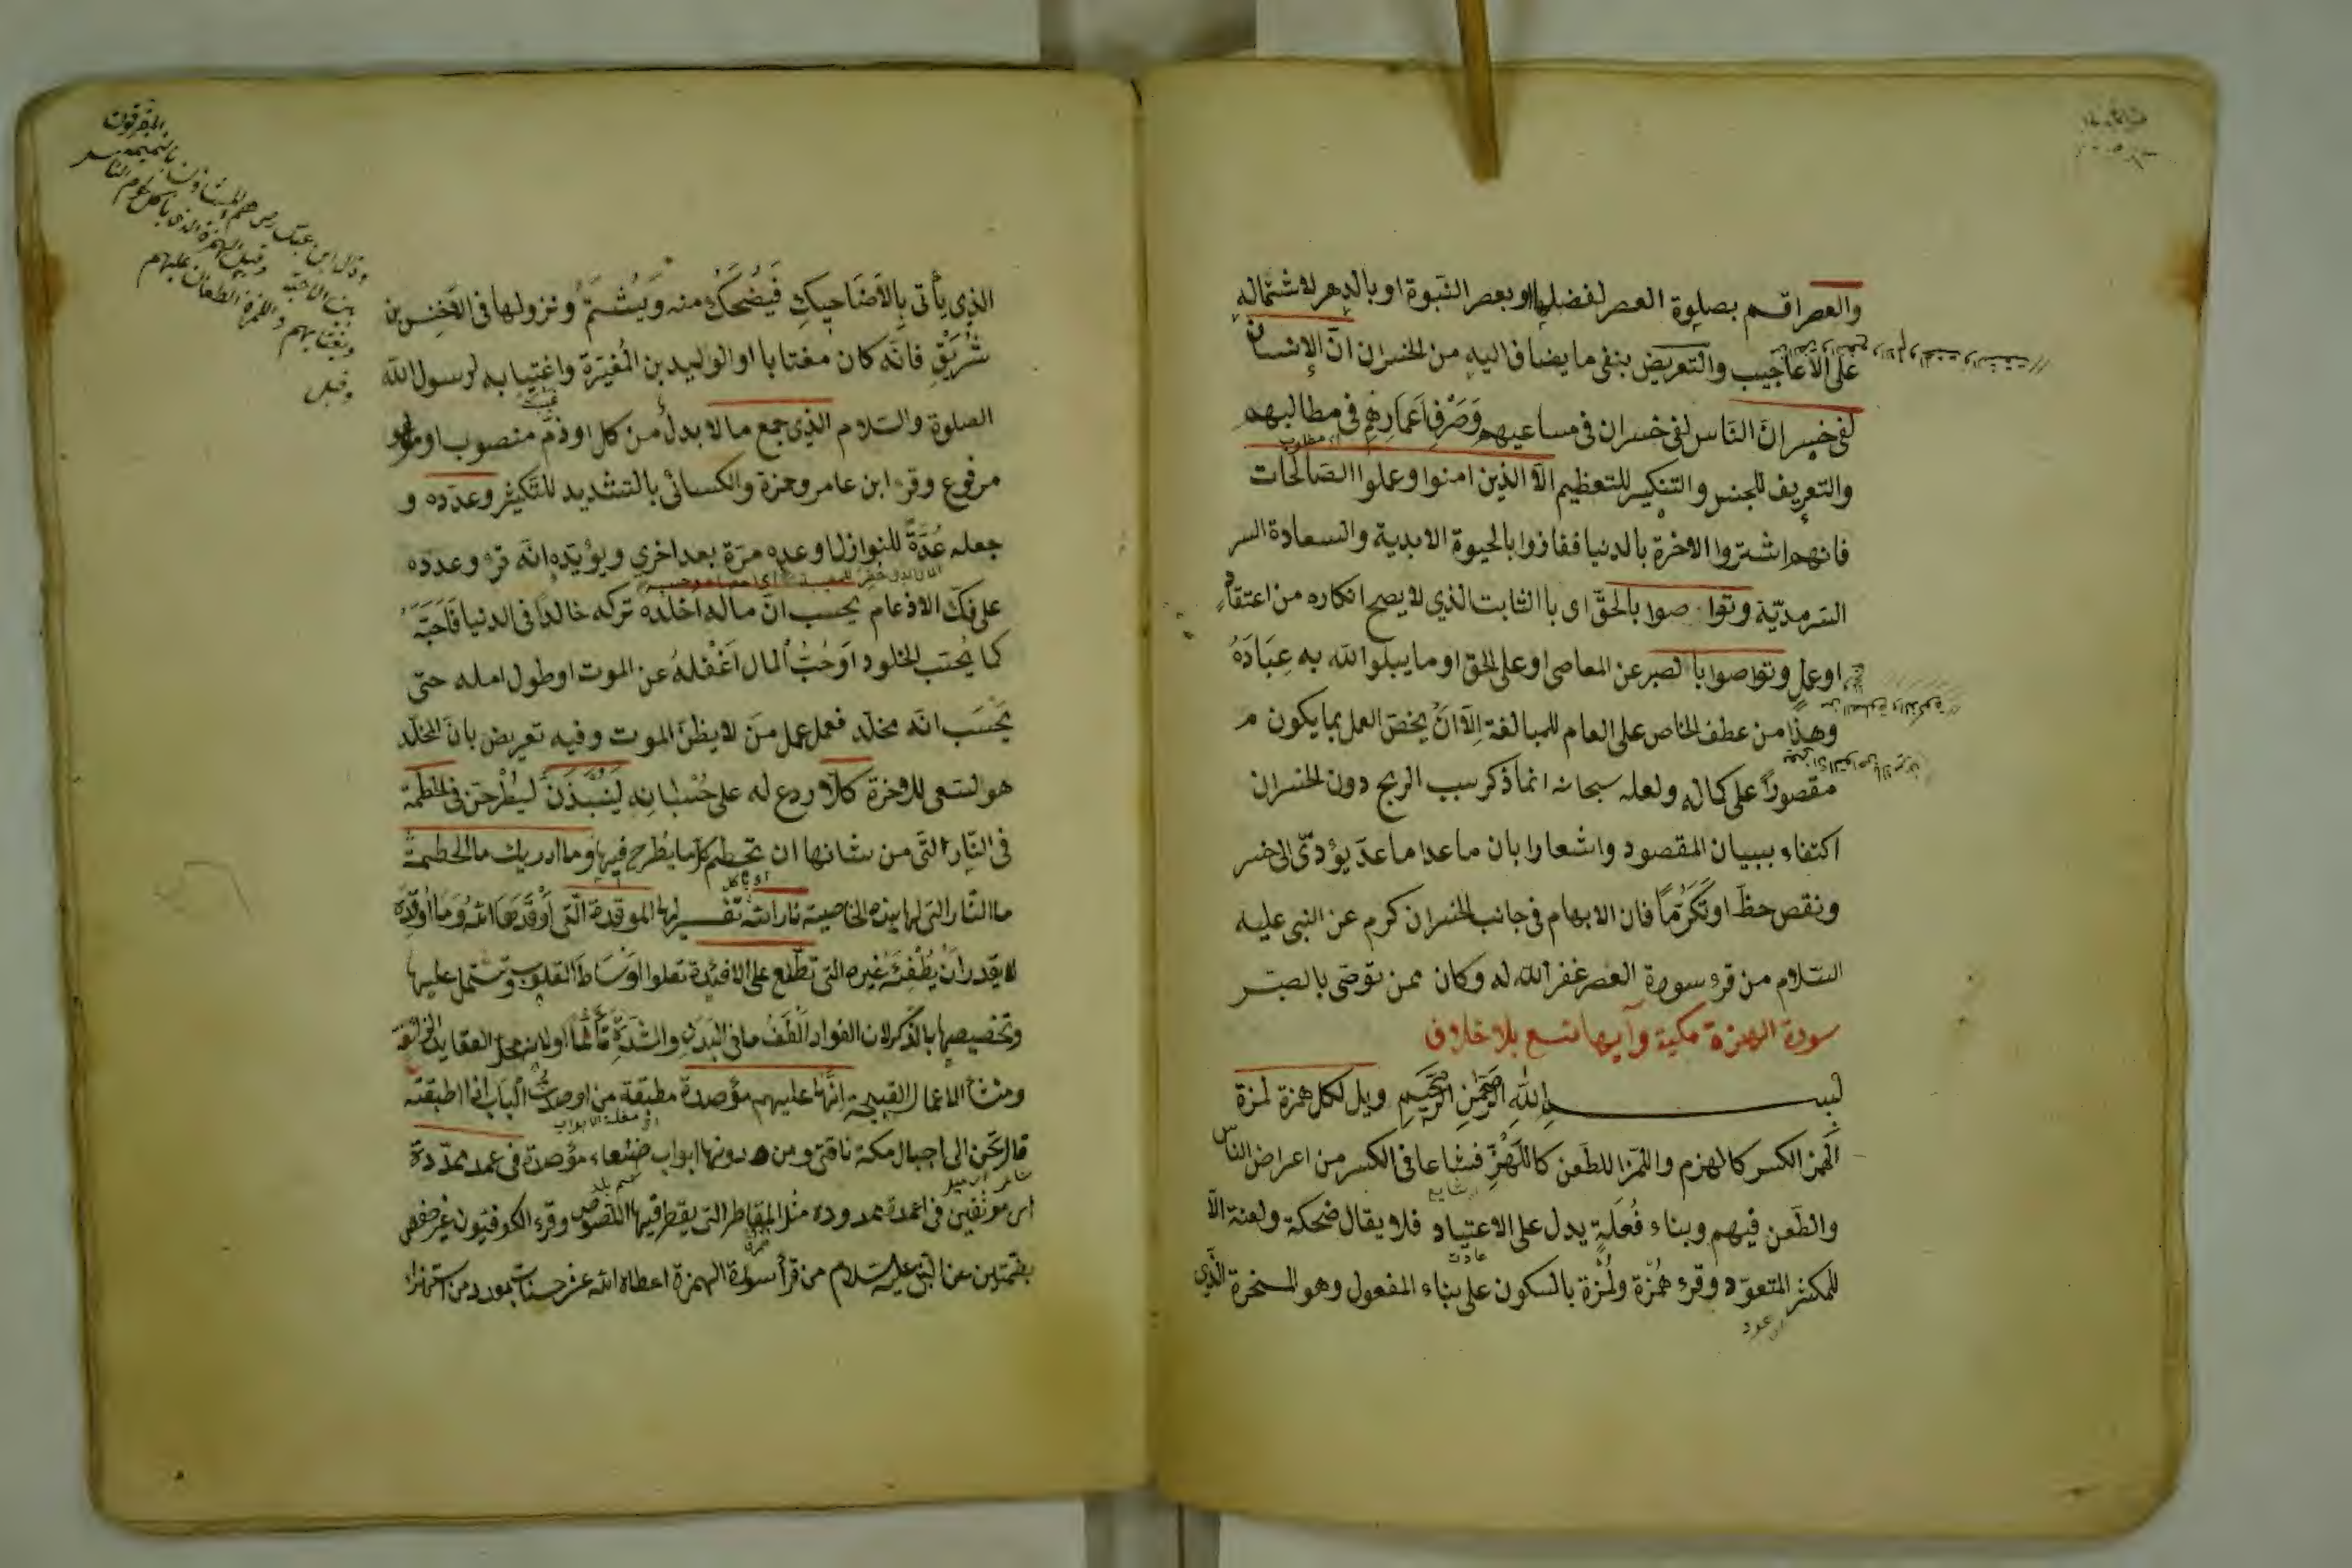 والعصر اقسم بصلوة العصر لفضلها او بعصر النبوة او بالدهر لاشتماله
على الاعاجيب والتعريض بنفى ما يضاف اليه من الخسران انّ الإنسان
لفى خسر انّ الناس لفى خسران فى مساعيهم وَصَرْفِ اَعمارهِم فى مطالبهم
والتعريف للجنس والتنكير للتعظيم الّا الذين امنوا وعملوا الصالحات
فانهم اشتروا الاخرة بالدنيا ففازوا بالحيوة الابدية والسعادة السر
السّرمديّة وتوا صوا بالحقّ اى باالثابت الذي لا يصح انكاره من اعتقاد
او عمل وتواصوا با لصبر عن المعاصى او على الحق او ما يبلوا الله به عِبَادَهُ
وهذا من عطف الخاص على العام للمبالغة اِلّا انْ يخصّ العمل بما يكون م
مقصوراً على كماله ولعله سبحانه انما ذكر سبب الربح دون الخسران
اكتفاء ببيان المقصود واشعارا بان ماعدا ما عدّ يؤدّى الى خسر
ونقص حظّ او تَكَرُّماً فان الابهام فى جانب الخسران كرم عن النبى عليه
السّلام من قرء سورة العصر غفر الله له وكان ممن توصّى بالصبر
سورة الهمزة مكية وآيها تسع بلا خلاف
بسم اللّهِ الرَّحمنِ الرَّحيمِ ويل لكل همزة لمزة
الهمز الكسر كالهزم واللمز الطعن كاللَّهْزِ فشاعا فى الكسر من اعراض الناس
والطّعن فيهم وبناء فُعَلَةٍ يدل على الاعتياد فلا يقال ضحكة ولعنة الّا
للمكثر المتعوّد وقرء هُمْزة ولُمْزة بالسكون على بناء المفعول وهو المسخرة الّذى
الذي يأتى بِالاَضَاحِيكِ فَيُضْحَكُ منه وَيُشْتَمُ ونزولها فى الاَخْنِس بن
شُرَيْقٍ فانّه كان مغتابا او الوليد بن المُغيَرة واغتِيابه لرسول الله
الصلوة والسّلام الّذى جمع مالا بدل من كل او ذمّ منصوب او
مرفوع وقرء ابن عامر وحمزة والكسائى بالتشديد للتّكثير وعدّده و
جعله عُدّةً للنوازل او عده مرّة بعد اخري ويؤيّده انّه قرء وعدَده
على فكّ الادغام يحسب انّ ماله اخلده تركه خالداً فى الدنيا فَاَحَبَّهُ
كما يُحبّ الخلود اَوْ حُبُّ المال اَغْفَلَهُ عن الموت او طول امله حتى
يَحْسَب انّه مخلّد فعمل عمل مَنْ لا يظنّ الموت وفيه تعريض بانّ المخلّد
هو السّعى للاخرة كلّا ردع له على حُسْبانِهِ لَيُنْبَذَنَّ ليُطْرحَنّ فى الحُطَمَة
فى النّارِ الّتى من شانها ان تحطم كلّ ما يُطْرح فيها وما ادريك ما الحطمة
ما النّار التى لها هذه الخاصية نار اللّه تفسير لها الموقدة الّتى اَوْقَدَهَا اللهُ وَمَا اُوْقَدَهُ
لا يقدر انْ يُطْفِئَهُ غيره التى تطّلع على الافئدة تعلوا اوْسَاطَ القلوب وتشتمل عليها
وتخصيصها بالذّكر لان الفواد اَلْطَفُ ما فى البَدَنِ واشَدُّهُ تألّماً او لانه محلّ العقايد الزائغة
ومنشأ الاعمال القبيحة انّها عليهم مؤصدة مطبقة من اوصدتُ الباب اذا اطبقته
قال تحنّ الى اجبال مكة ناقتى ومن دونها ابواب صنعاء مؤصدة فى عمد ممدّدة
اى موثقين فى اعمدة ممدوده مثل المقاطر التى يقطر فيها اللصوص وقرء الكوفيون غير حفص
بضمّتين عن النبى عليه السّلام من قرأ سورة الهمزة اعطاه الله عشر حسنات بعدد من استهزاء
وقال ابن عباس رض هم المشاؤن بالنميمة المفرقون
بين الاحبة وقيل الهمزة الذى ياكل لحوم الناس
ويغتابهم واللمزة الطعان عليهم
وقيل